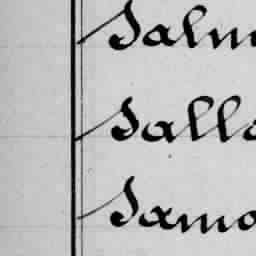 Salm
Salla
Samo